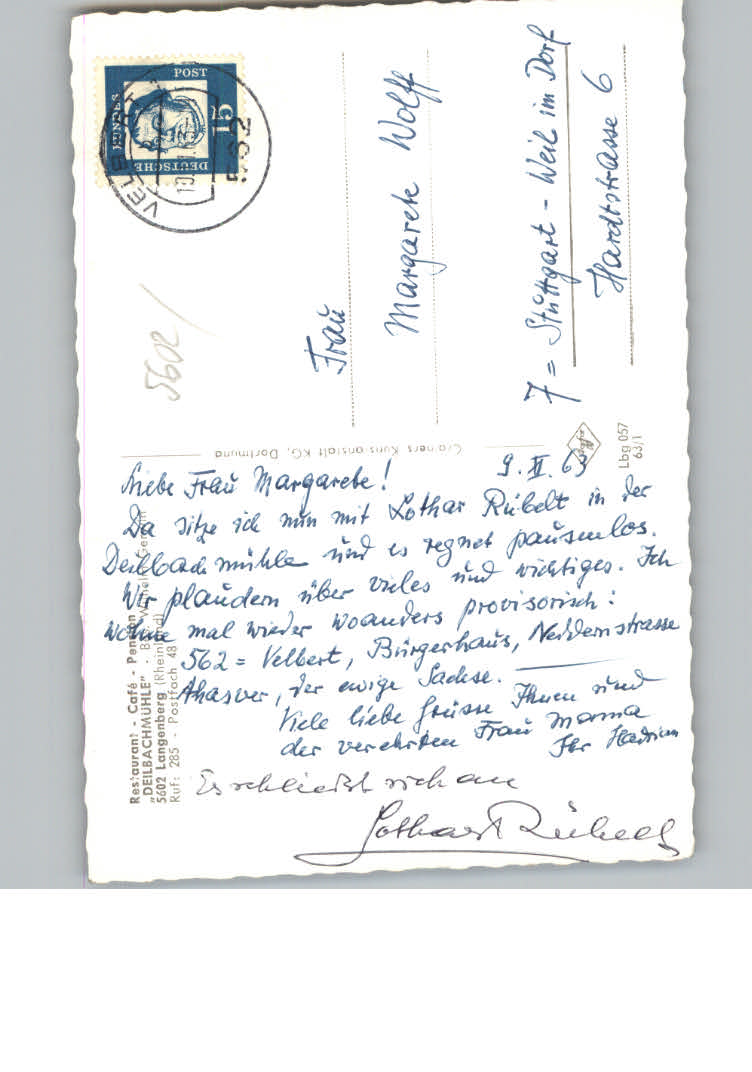 Liebe Frau Margarete! 9. XI. 63
Da sitze ich nun mit Lothar Rübelt in der
Deilbachmühle und es regnet pausenlos.
Wir plaudern über vieles und wichtiges. Ich
wohne mal wieder woanders provisorisch:
562 = Velbert, Bürgerhaus, Neddernstrasse
Ahasver, der ewige Sachse.
Viele liebe Grüsse Ihnen und
der verehrten Frau Mama
Ihr
Es schließt sich an
Lothar Rübelt
Restaurant - Café - Pension
"DEILBACHMÜHLE"
5602 Langenberg (Rheinland)
Ruf: 285 - Postfach 48
Cramers Kunstanstalt KG, Dortmund
Lbg 057
63/1
Frau
Margarete Wolff
7 = Stuttgart - Weil im Dorf
Hardtstrasse 6
5602
DEUTSCHE
BUNDES
POST
15
VELBERT
562